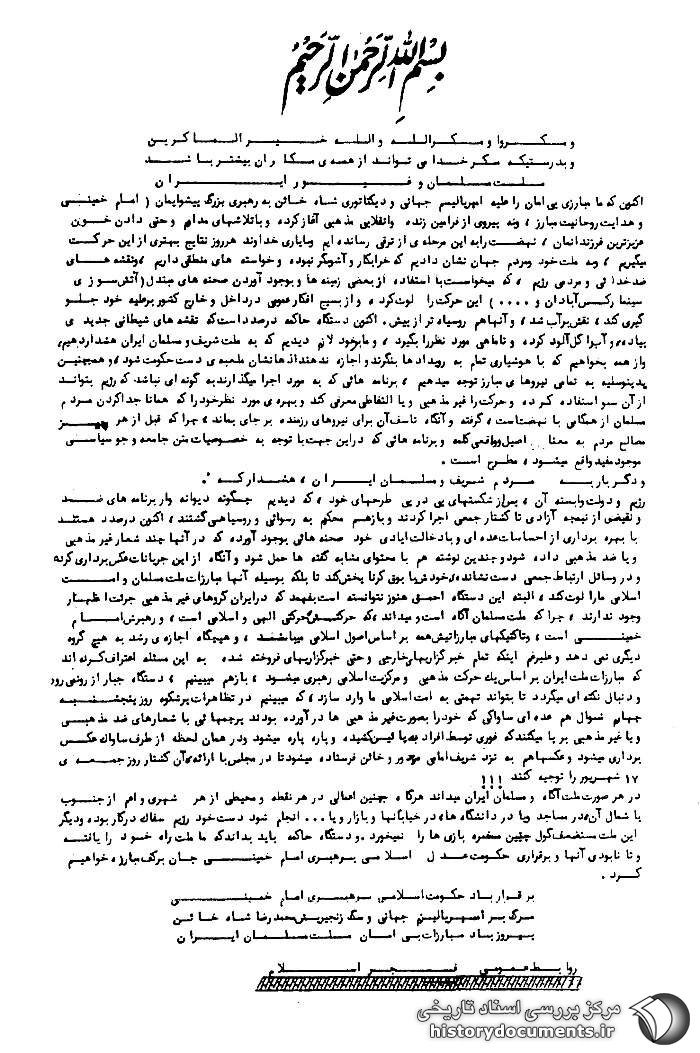 بِسْمِ اللهِ الرَّحْمٰنِ الرَّحِیْمِ
و مکروا و مکرالله والله خیر الماکرین
و بدرستیکه مکر خدا می تواند از همه ی مکاران بیشتر باشد
ملت مسلمان و غیور ایران
اکنون که ما مبارزی بی امان را علیه امپریالیسم جهانی و دیکتاتوری شاه خائن به رهبری بزرگ پیشوایمان ( امام خمینی
و هدایت روحانیت مبارز ، و به پیروی از فرامین زنده وانقلابی مذهبی آغاز کرده و باتلاشهای مداوم و حتی دادن خون
عزیزترین فرزندانمان ، نهضت را به این مرحله ی از ترقی رسانده ایم و بایاری خداوند هرروز نتایج بهتری از این حرکت
میگیریم ، و به ملت خود و مردم جهان نشان دادیم که خرابکار و آشوبگر نبوده و خواسته های منطقی داریم ، و نقشه های
ضد خدائی و مردمی رژیم ، که میخواست با استفاده از بعضی زمینه ها و بوجود آوردن صحنه های مبتذل ( آتش سوزی
سینما رکس آبادان و .... ) این حرکت را لوث کرده و از بسیج افکار عمومی در داخل و خارج کشور بر علیه خود جلو
گیری کند ، نقش بر آب شد ، و آنها هم روسیاه تر از پیش . اکنون دستگاه حاکمه درصدد است که نقشه های شیطانی جدیدی
پیاده ، و آب را گل آلود کرده و تا ماهی مورد نظر را بگیرد ، و ما بر خود لازم دیدیم که به ملت شریف و مسلمان ایران هشدار دهیم ،
و از همه بخواهیم که با هوشیاری تمام به رویدادها بنگرند و اجازه ندهند اذهانشان ملعبه ی دست حکومت شود ، و همچنین
بدینوسیله به تمامی نیروهای مبارز توجه میدهیم ، برنامه هائی که به مورد اجرا میگذارند به گونه ای نباشد که رژیم بتواند
از آن سو استفاده کرده و حرکت را غیر مذهبی و یا التقاطی معرفی کند و بهره ی مورد نظر خود را که همانا جدا کردن مردم
مسلمان از همگامی با نهضت است ، گرفته و آنگاه تاسف آن برای نیروهای رزمنده بر جای بماند ، چرا که قبل از هر چیز
مصالح مردم به معنا اصیل و واقعی کلمه و برنامه هائی که در این جهت با توجه به خصوصیات متن جامعه و جو سیاسی
موجود مفید واقع میشود ، مطرح است .
و دگر بار به مردم شریف و مسلمان ایران ، هشدار که :
رژیم و دولت وابسته آن ، پس از شکستهای پی در پی طرحهای خود ، که دیدیم چگونه دیوانه وار برنامه های ضد
و نقیضی از نیمچه آزادی تا کشتار جمعی اجرا کردند و باز هم محکوم به رسوائی و روسیاهی گشتند ، اکنون درصدد هستند
با بهره برداری از احساسات عده ای و با دخالت ایادی خود صحنه هائی بوجود آورده که در آنها چند شعار غیر مذهبی
و یا ضد مذهبی داده شود و چندین نوشته هم با محتوای مشابه گفته ها حمل شود و آنگاه از این جریانات عکس برداری کرده
و در وسائل ارتباط جمعی دست نشانده ی خود ش با بوق کرنا پخش کند تا بلکه بوسیله آنها مبارزات ملت مسلمان و امت
اسلامی ما را لوث کند ، البته این دستگاه احمق هنوز نتوانسته است بفهمد که در ایران گروهای غیر مذهبی جرئت اظهار
وجود ندارند ، چرا که ملت مسلمان آگاه است و میداند ، که حرکتش حرکتی الهی و اسلامی است ، و رهبرش امام
خمینی است ، و تاکتیکهای مبارزاتیش همه بر اساس اصول اسلامی میباشند ، و هیچگاه اجازه ی رشد به هیچ گروه
دیگری نمی دهد و علیرغم اینکه تمام خبرگزاریهای خارجی و حتی خبرگزاریهای فروخته شده به این مسئله اعتراف کرده اند
که مبارزات ملت ایران بر اساس یک حرکت مذهبی و مرکزیت اسلامی رهبری میشود ، باز هم میبینیم ، دستگاه جبار از رو نمی رود
و دنبال نکته ای میگردد تا بتواند تهمتی به امت اسلامی ما وارد سازد ، که میبینیم در تظاهرات پرشکوه روز پنجشنبه
چهارم شوال هم عده ای ساواکی که خود را بصورت غیر مذهبی ها در آورده بودند پرچمهائی با شعارهای ضد مذهبی
و یا غیر مذهبی بر پا میکنند که فوری توسط افراد به پائین کشیده ، و پاره پاره میشود و در همان لحظه از طرف ساواک عکس
برداری میشود و عکسها هم به نزد شریف امامی مزدور و خائن فرستاده میشود تا در مجلس با ارائه ی آن کشتار روز جمعه ی
۱۷ شهریور را توجیه کنند !!!
در هر صورت ملت آگاه و مسلمان ایران میداند هرگاه چنین اعمالی در هر نقطه و محیطی از هر شهری و اعم از جنوب
یا شمال آن ، در مساجد و یا در دانشگاه ها ، در خیابانها و بازار و یا ... انجام شود دست خود رژیم سفاک در کار بوده و دیگر
این ملت مستضعف گول چنین مسخره بازی ها را نمیخورد . و دستگاه حاکمه باید بداند که ما ملت راه خود را یافته
و تا نابودی آنها و برقراری حکومت عدل اسلامی برهبری امام خمینی جان برکف مبارزه خواهیم
کرد .
برقرار باد حکومت اسلامی برهبری امام خمینی
مرگ بر امپریالیزم جهانی و سگ زنجیریش محمدرضا شاه خائن
پیروز باد مبارزات بی امان ملت مسلمان ایران
روابط عمومی فجر اسلام
مرکز بررسی اسناد تاریخی
historydocuments.ir